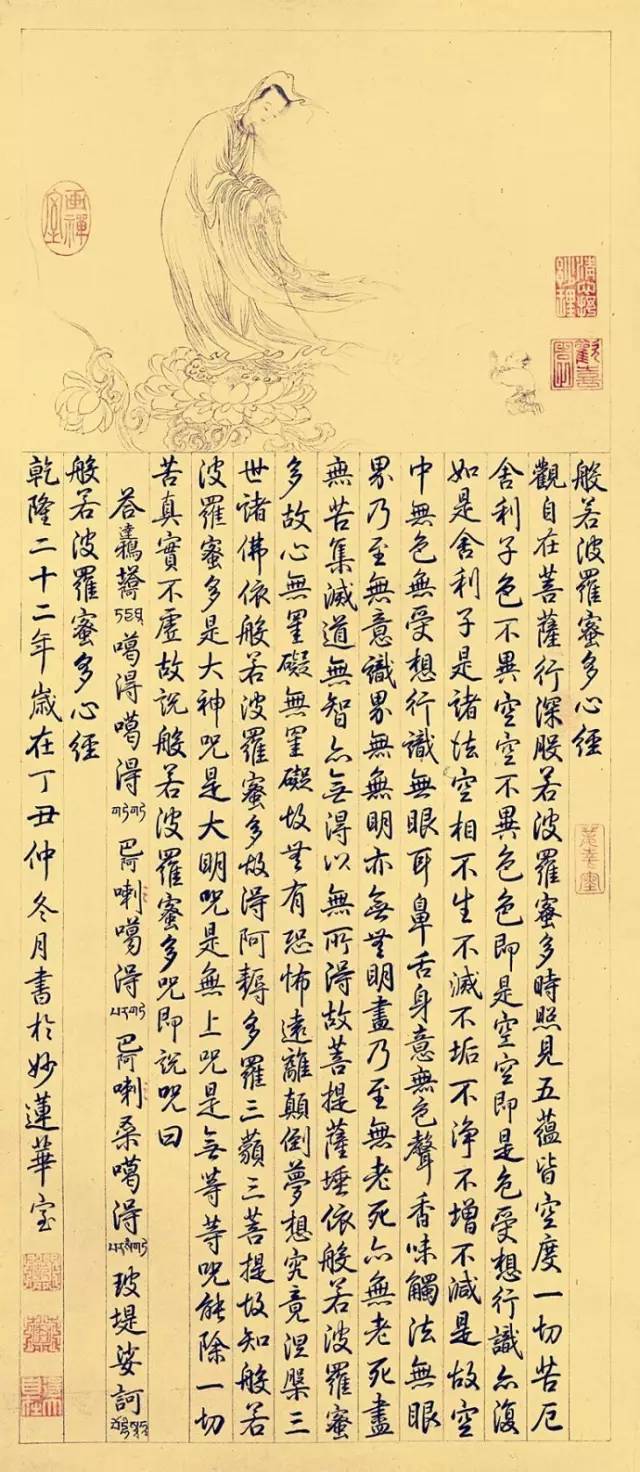 畫禪室
般若波羅蜜多心經
觀自在菩薩行深般若波羅蜜多時照見五蘊皆空度一切苦厄
舍利子色不異空空不異色色即是空空即是色受想行識亦復
如是舍利子是諸法空相不生不滅不垢不淨不增不減是故空
中無色無受想行識無眼耳鼻舌身意無色聲香味觸法無眼
界乃至無意識界無無明亦無無明盡乃至無老死亦無老死盡
無苦集滅道無智亦無得以無所得故菩提薩埵依般若波羅蜜
多故心無罣礙無罣礙故無有恐怖遠離顛倒夢想究竟涅槃三
世諸佛依般若波羅蜜多故得阿耨多羅三藐三菩提故知般若
波羅蜜多是大神咒是大明咒是無上咒是無等等咒能除一切
苦真實不虛故說般若波羅蜜多咒即說咒曰
答 噶得噶得 巴阿喇噶得 巴阿喇桑噶得 玻堤娑訶
般若波羅蜜多心經
乾隆二十二年歲在丁丑仲冬月書於妙蓮華室